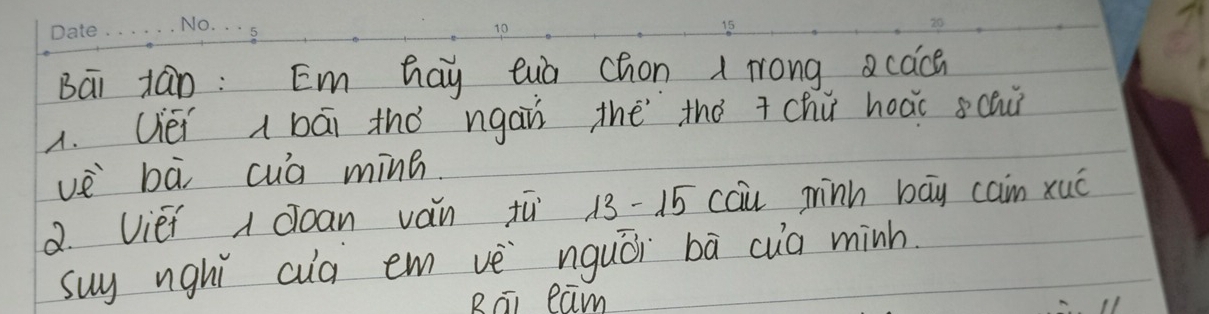 Date ...... No. ... 5 10 15 20
Bài tập: Em hãy lựa chọn 1 trong 2 cách
1. Viết 1 bài thơ ngắn thể thơ 7 chữ hoặc 8 chữ
về bà của mình.
2. Viết 1 đoạn văn từ 13-15 câu trình bày cảm xúc
suy nghĩ của em về người bà của mình.
Bài làm